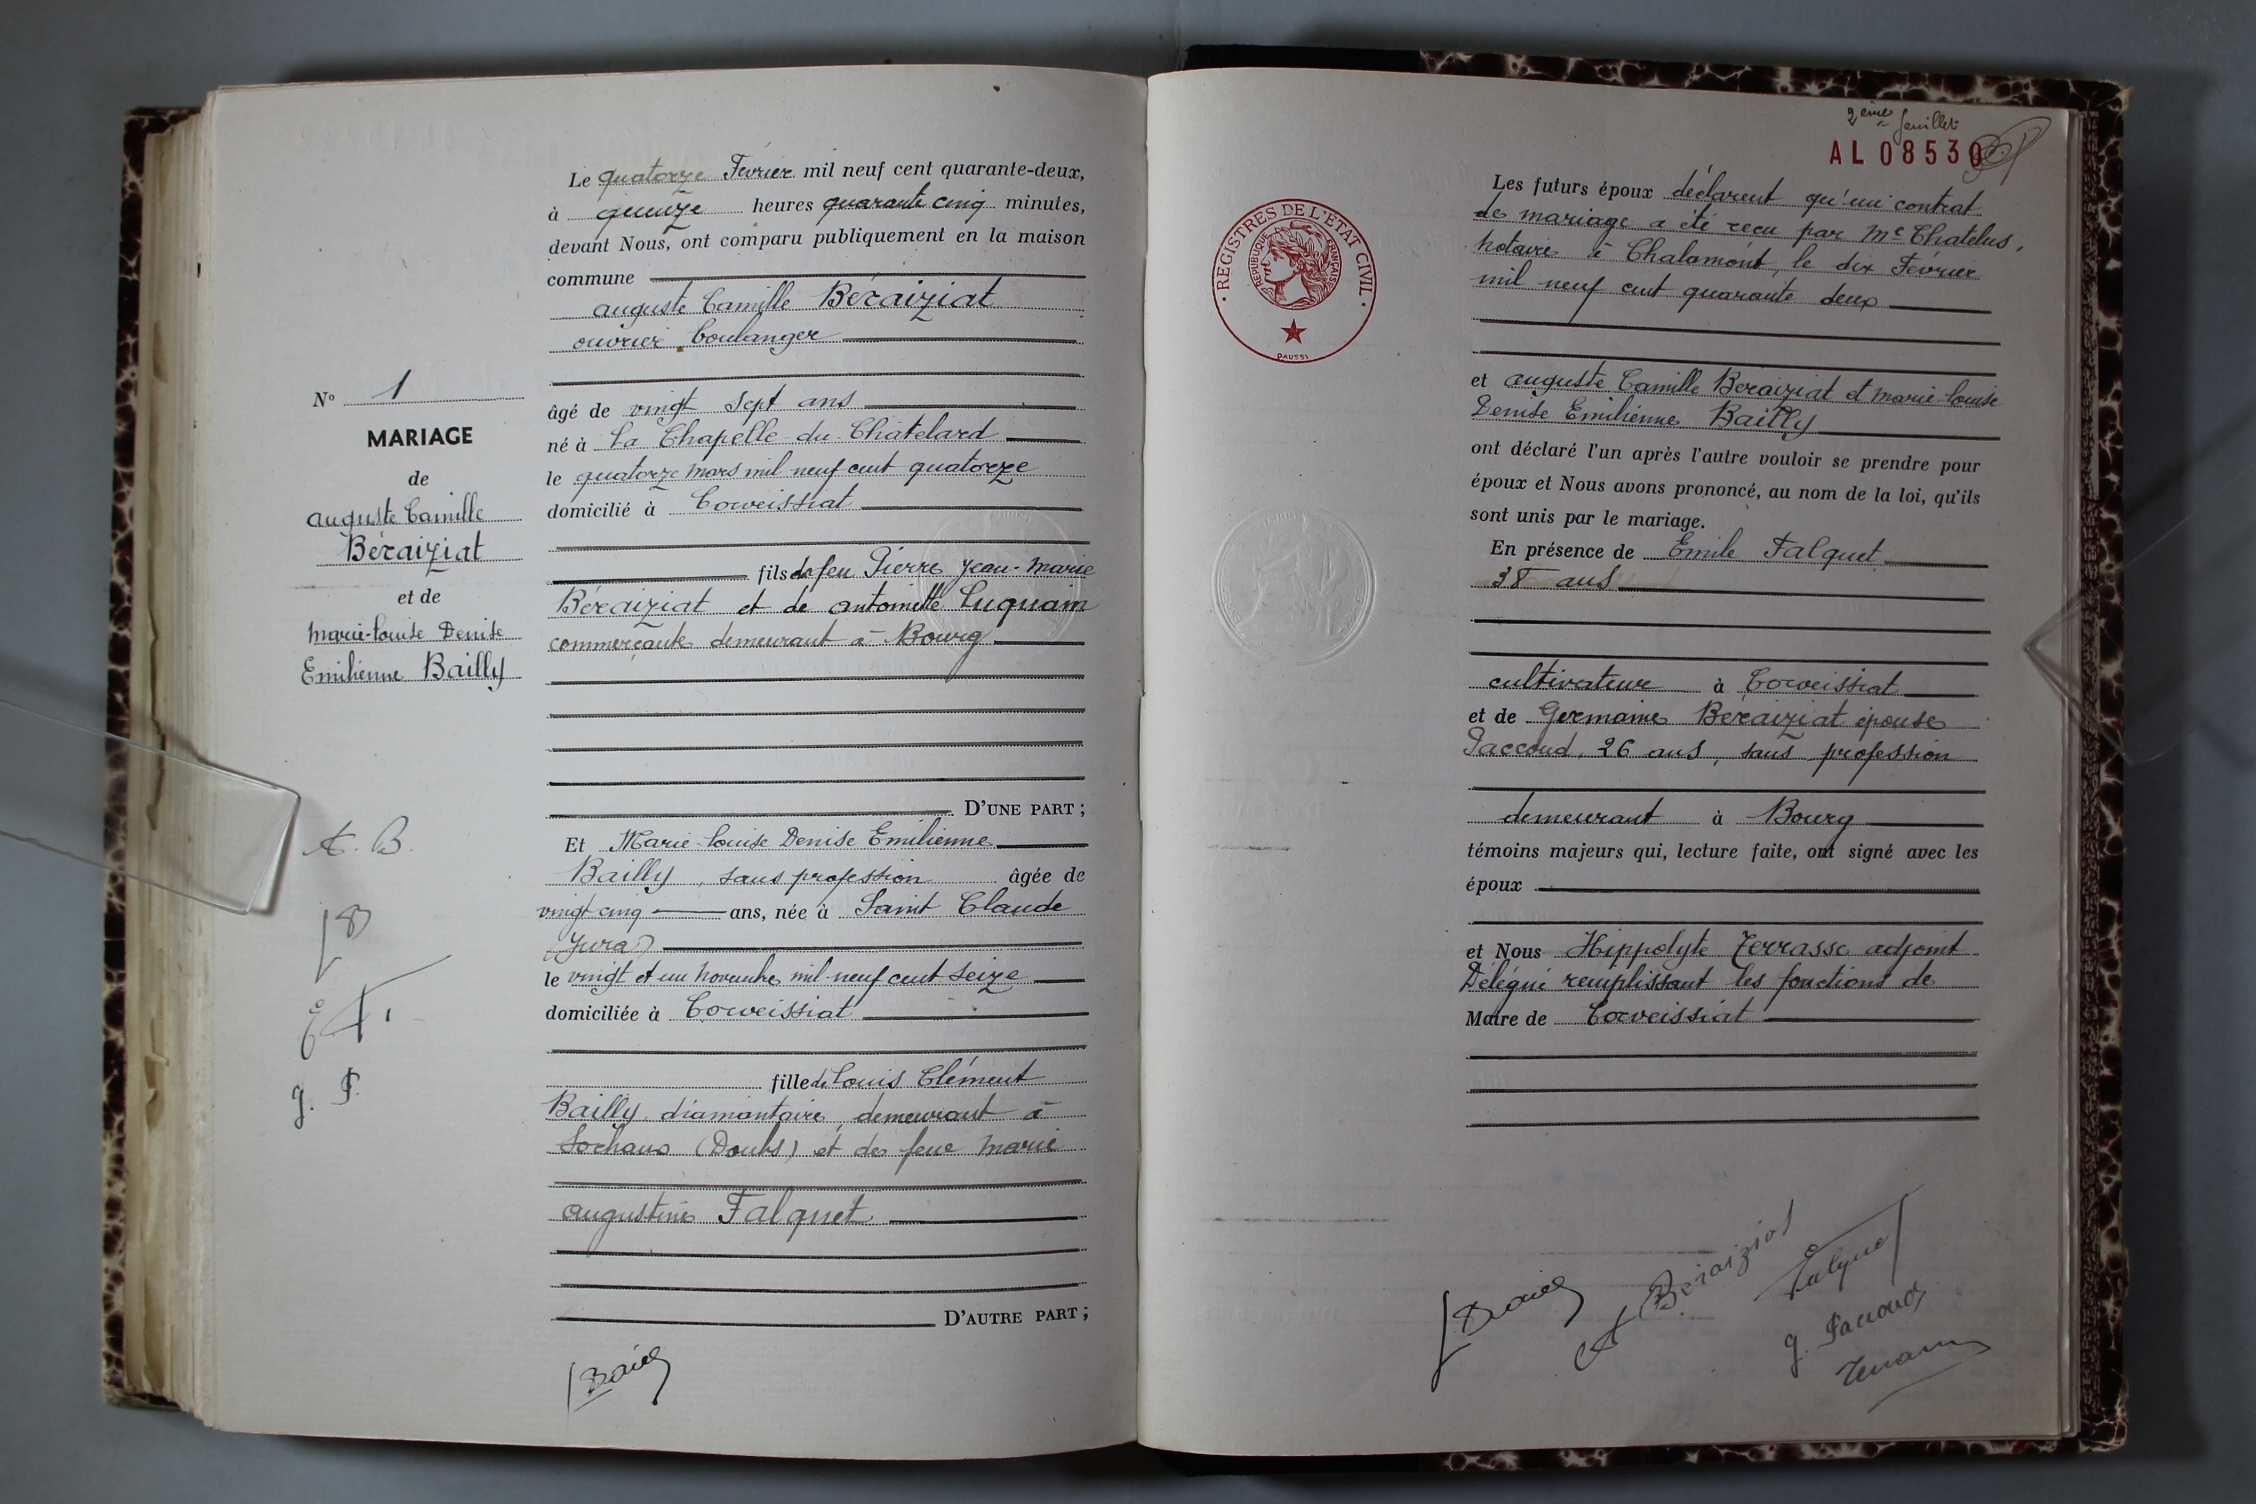 Le quatorze Février mil neuf cent quarante-deux,
à quinze heures quarante cinq minutes,
devant Nous, ont comparu publiquement en la maison
commune
auguste Camille Béraiziat
ouvrier boulanger
N° 1
MARIAGE
de
auguste Camille
Béraiziat
et de
marie-louise Denise
Emilienne Bailly
A. B.
g. P.
âgé de vingt sept ans
né à La Chapelle-du-Châtelard
le quatorze mars mil-neuf cent quatorze
domicilié à Corveissiat
fils de feu Pierre Jean-Marie
Béraiziat et de antoinette Luquain
commerçante demeurant à Bourg
D'UNE PART ;
Et Marie-louise Denise Emilienne
Bailly, sans profession âgée de
vingt cinq ans, née à Saint Claude
(Jura)
le vingt et un novembre mil-neuf cent seize
domiciliée à Corveissiat
fille de Louis Clément
Bailly diamantaire, demeurant à
Sochaux (Doubs) et de feue marie
augustine Falquet
D'AUTRE PART ;
2ème feuillet
AL 08530
REGISTRES DE L'ETAT CIVIL
REPUBLIQUE FRANÇAISE
DAUSSI
Les futurs époux déclarent qu'un contrat
de mariage a été reçu par Me Chatelus,
notaire à Chalamont, le dix Février
mil neuf cent quarante deux
et auguste Camille Beraiziat et marie-louise
Denise Emilienne Bailly
ont déclaré l'un après l'autre vouloir se prendre pour
époux et Nous avons prononcé, au nom de la loi, qu'ils
sont unis par le mariage.
En présence de Emile Falquet
38 ans
cultivateur à Corveissiat
et de Germaine Béraiziat épouse
Paccoud, 26 ans, sans profession
demeurant à Bourg
témoins majeurs qui, lecture faite, ont signé avec les
époux
et Nous Hippolyte Terrasse adjoint
Délégué remplissant les fonctions de
Maire de Corveissiat
A Beraiziat
Falquet
g. Paccoud